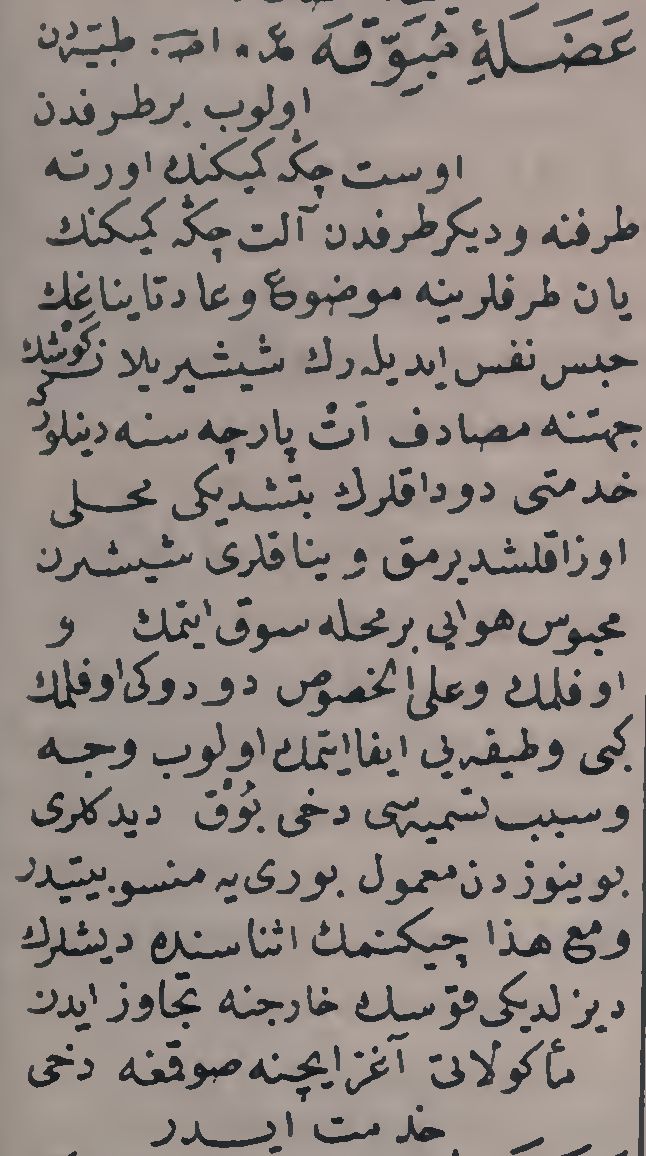 عَضَلَهٔ مُبَوِّقَه ع. ا. طبیه‌دن
اولوب برطرفدن
اوست چڭه کمیكنك اورته
طرفنه ودیكرطرفدن آلت چڭه کمیكنك
یان طرفلرینه موضوع وعادتا یناغڭ
حبس نفس ایدیله‌رك شیشیریلان كوشك
جهتنه مصادف اتْ پارچه سنه دینلوركه
خدمتی دوداقلرك بتشدیكی محلی
اوزاقلشدیرمق و یناقلری شیشرن
محبوس هوایی برمحله سوق ایتمك و
اوفلمك وعلی الخصوص دودوكی اوفلمك
كبی وظیفه یی ایفاایتمك اولوب وجه
وسبب تسمیه سی دخی بُوْق دیدكلری
بوینوزدن معمول بوری یه منسوبیتیدر
ومع هذا چیكنمك اثناسنده دیشلرك
دیزلدیكی قوسك خارجنه تجاوز ایدن
مأكولاتی آغزایچنه صوقمغه دخی
خدمت ایدر